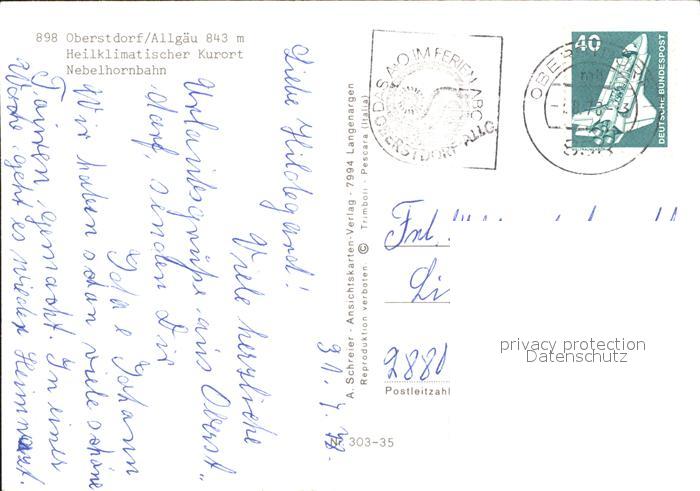 898 Oberstdorf/Allgäu 843 m
Heilklimatischer Kurort
Nebelhornbahn
Liebe Hildegard!
Viele herzliche
Urlaubsgrüße aus Oberst„
dorf, senden Dir
Johann
Wir haben schon viele schöne
Touren gemacht. In einer
Woche geht es wieder Heimwärts.
31. 7. 78.
DAS A-O IM FERIEN-ABC
OBERSTDORF ALLG.
40
DEUTSCHE BUNDESPOST
A. Schreier - Ansichtskarten-Verlag - 7994 Langenargen
Reproduktion verboten · © Trimboli - Pescara (Italia)
Frl.
Li
2880
Postleitzahl
Nr. 303-35
privacy protection
Datenschutz